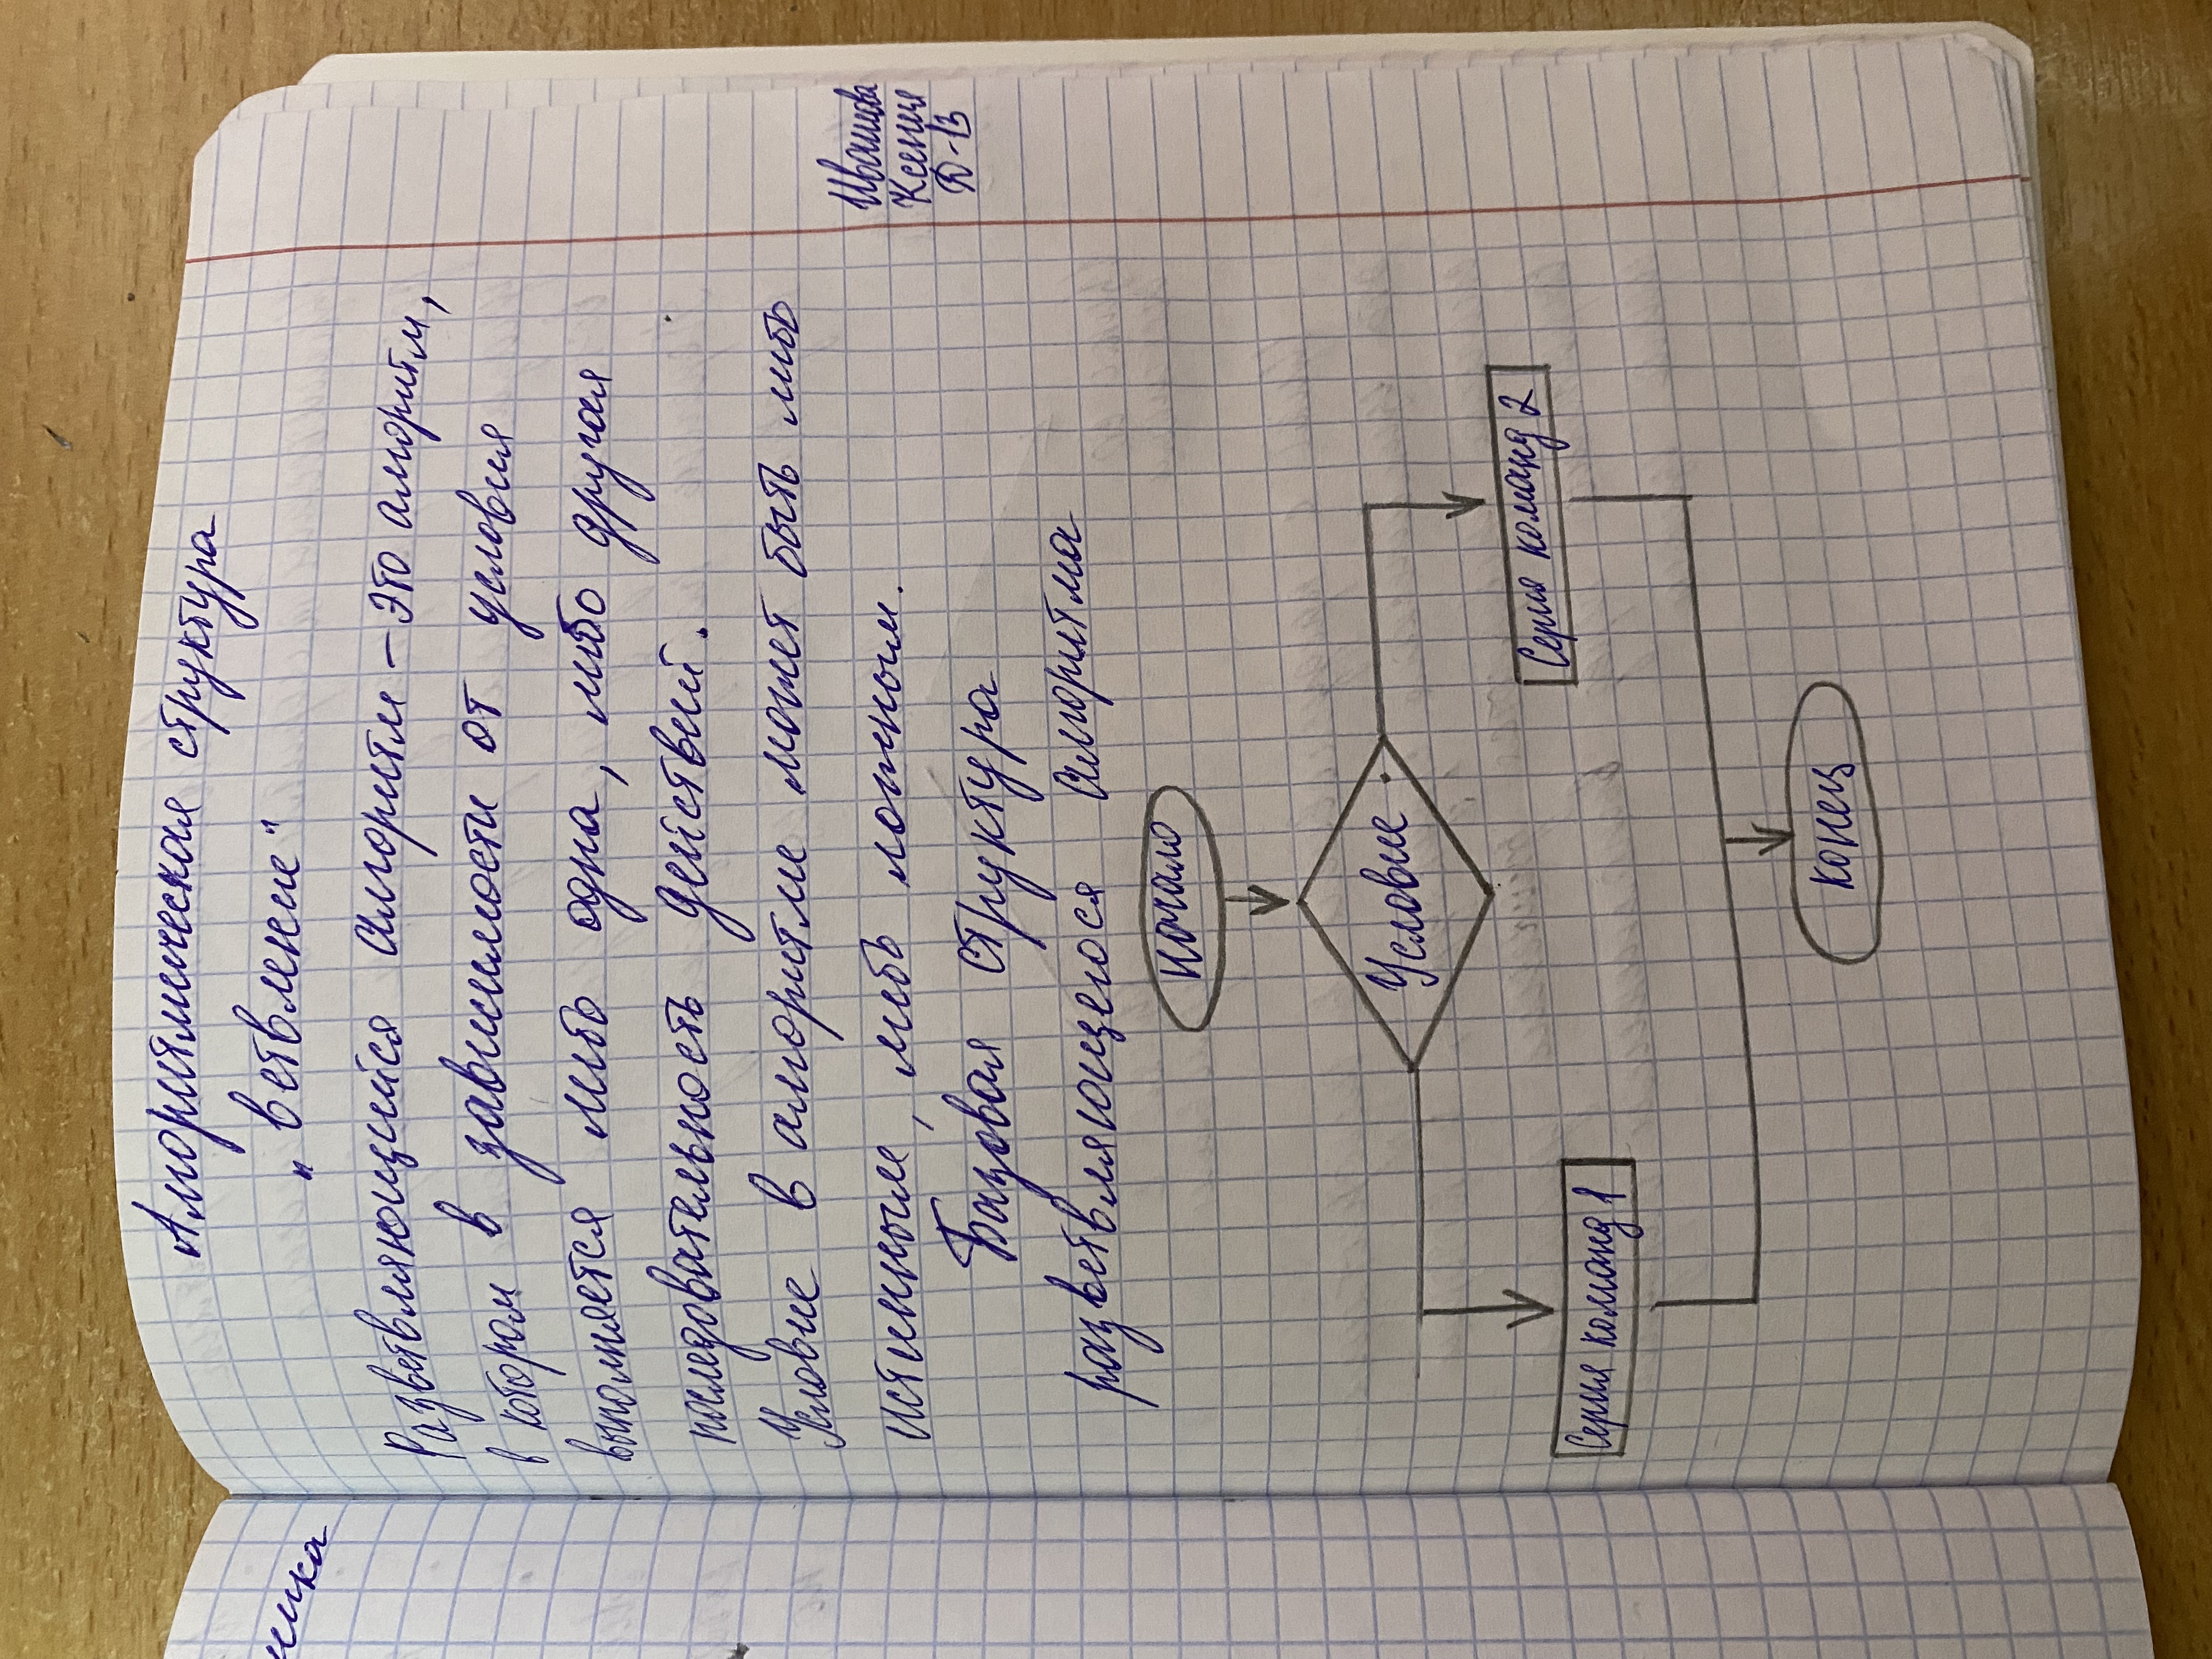 Алгоритмическая структура
"ветвление"
Разветвляющийся алгоритм - это алгоритм,
в котором в зависимости от условия
выполняется либо одна, либо другая
последовательность действий.
Условие в алгоритме может быть либо
истинным, либо ложным.
Базовая структура
разветвляющегося алгоритма
начало
Условие
Серия команд 1
Серия команд 2
конец
Ксения